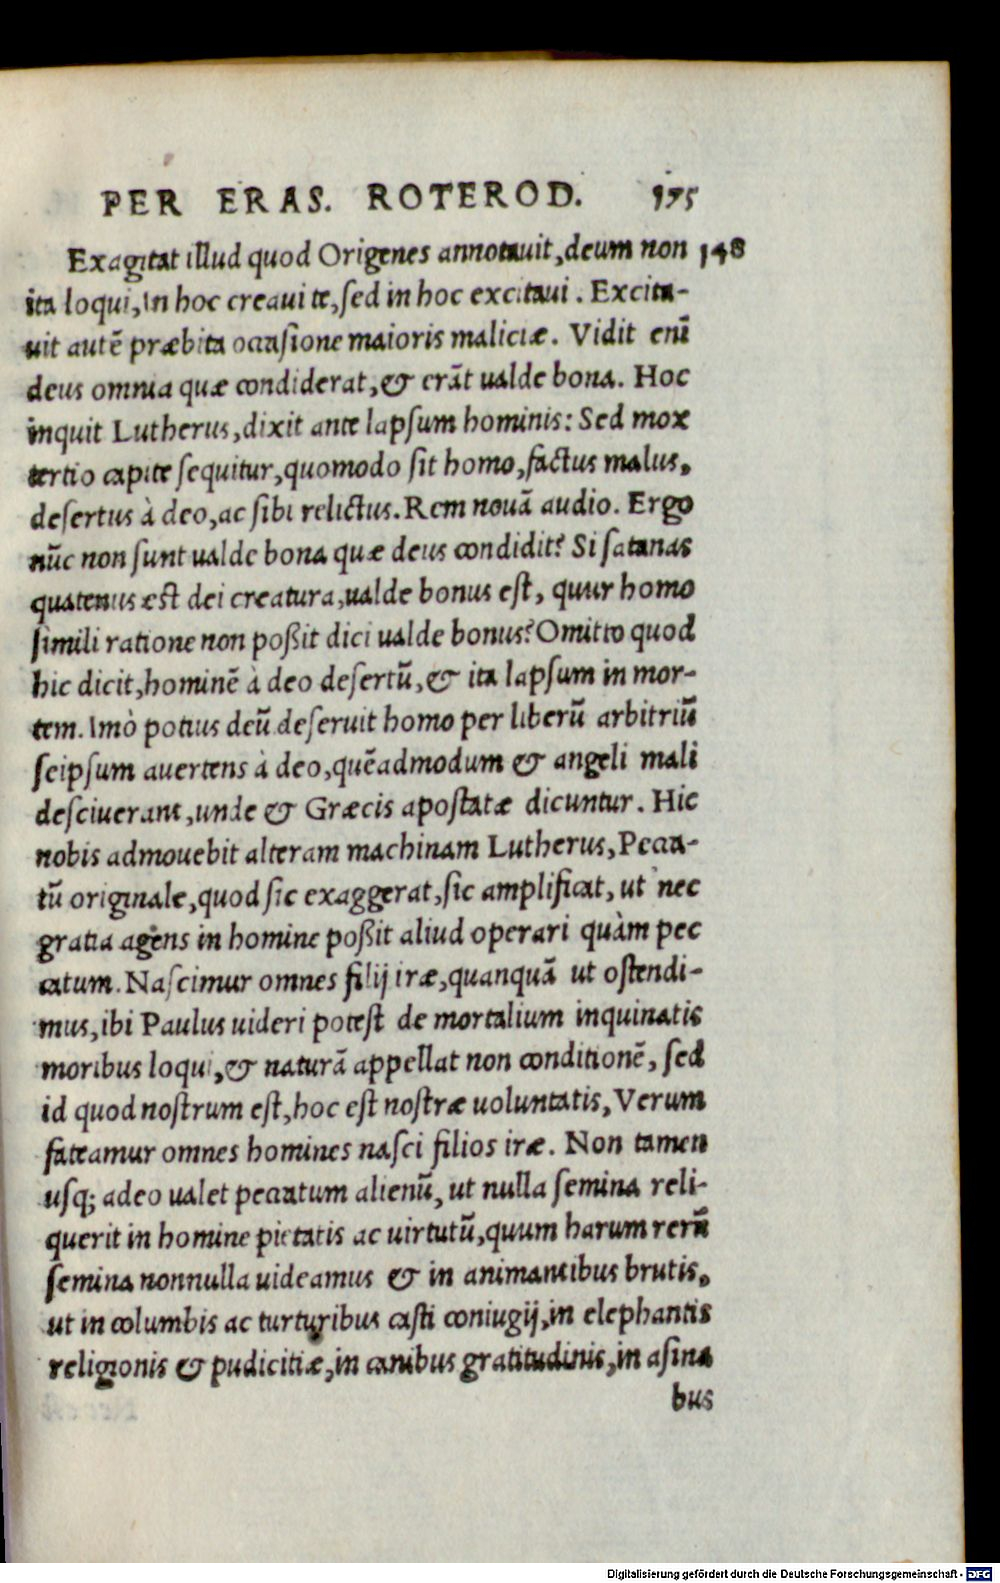 PER ERAS. ROTEROD. 175
Exagitat illud quod Origenes annotauit, deum non 148
ita loqui, In hoc creaui te, sed in hoc excitaui. Excita-
uit autē præbita occasione maioris maliciæ. Vidit enī
deus omnia quæ condiderat, & erāt ualde bona. Hoc
inquit Lutherus, dixit ante lapsum hominis: Sed mox
tertio capite sequitur, quomodo sit homo, factus malus,
desertus à deo, ac sibi relictus. Rem nouā audio. Ergo
nūc non sunt ualde bona quæ deus condidit? Si satanas
quatenus est dei creatura, ualde bonus est, quur homo
simili ratione non poßit dici ualde bonus? Omitto quod
hic dicit, hominē à deo desertū, & ita lapsum in mor-
tem. Imò potius deū deseruit homo per liberū arbitriū
seipsum auertens à deo, quēadmodum & angeli mali
desciuerant, unde & Græcis apostatæ dicuntur. Hic
nobis admouebit alteram machinam Lutherus, Pecca-
tū originale, quod sic exaggerat, sic amplificat, ut nec
gratia agens in homine poßit aliud operari quàm pec
catum. Nascimur omnes filij iræ, quanquā ut ostendi-
mus, ibi Paulus uideri potest de mortalium inquinatis
moribus loqui, & naturā appellat non conditionē, sed
id quod nostrum est, hoc est nostræ uoluntatis, Verum
fateamur omnes homines nasci filios iræ. Non tamen
usq; adeo ualet peccatum alienū, ut nulla semina reli-
querit in homine pietatis ac uirtutū, quum harum rerū
semina nonnulla uideamus & in animantibus brutis,
ut in columbis ac turturibus casti coniugij, in elephantis
religionis & pudicitiæ, in canibus gratitudinis, in asina
bus
Digitalisierung gefördert durch die Deutsche Forschungsgemeinschaft - DFG